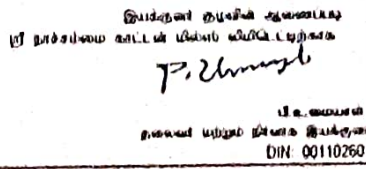 இயக்குனர் குழுவின் ஆணைப்படி
ஸ்ரீ நாச்சம்மை காட்டன் மில்ஸ் லிமிடெட்டிற்காக
P. Umayal
பி.உமையாள்
தலைவர் மற்றும் நிர்வாக இயக்குனர்
DIN: 00110260